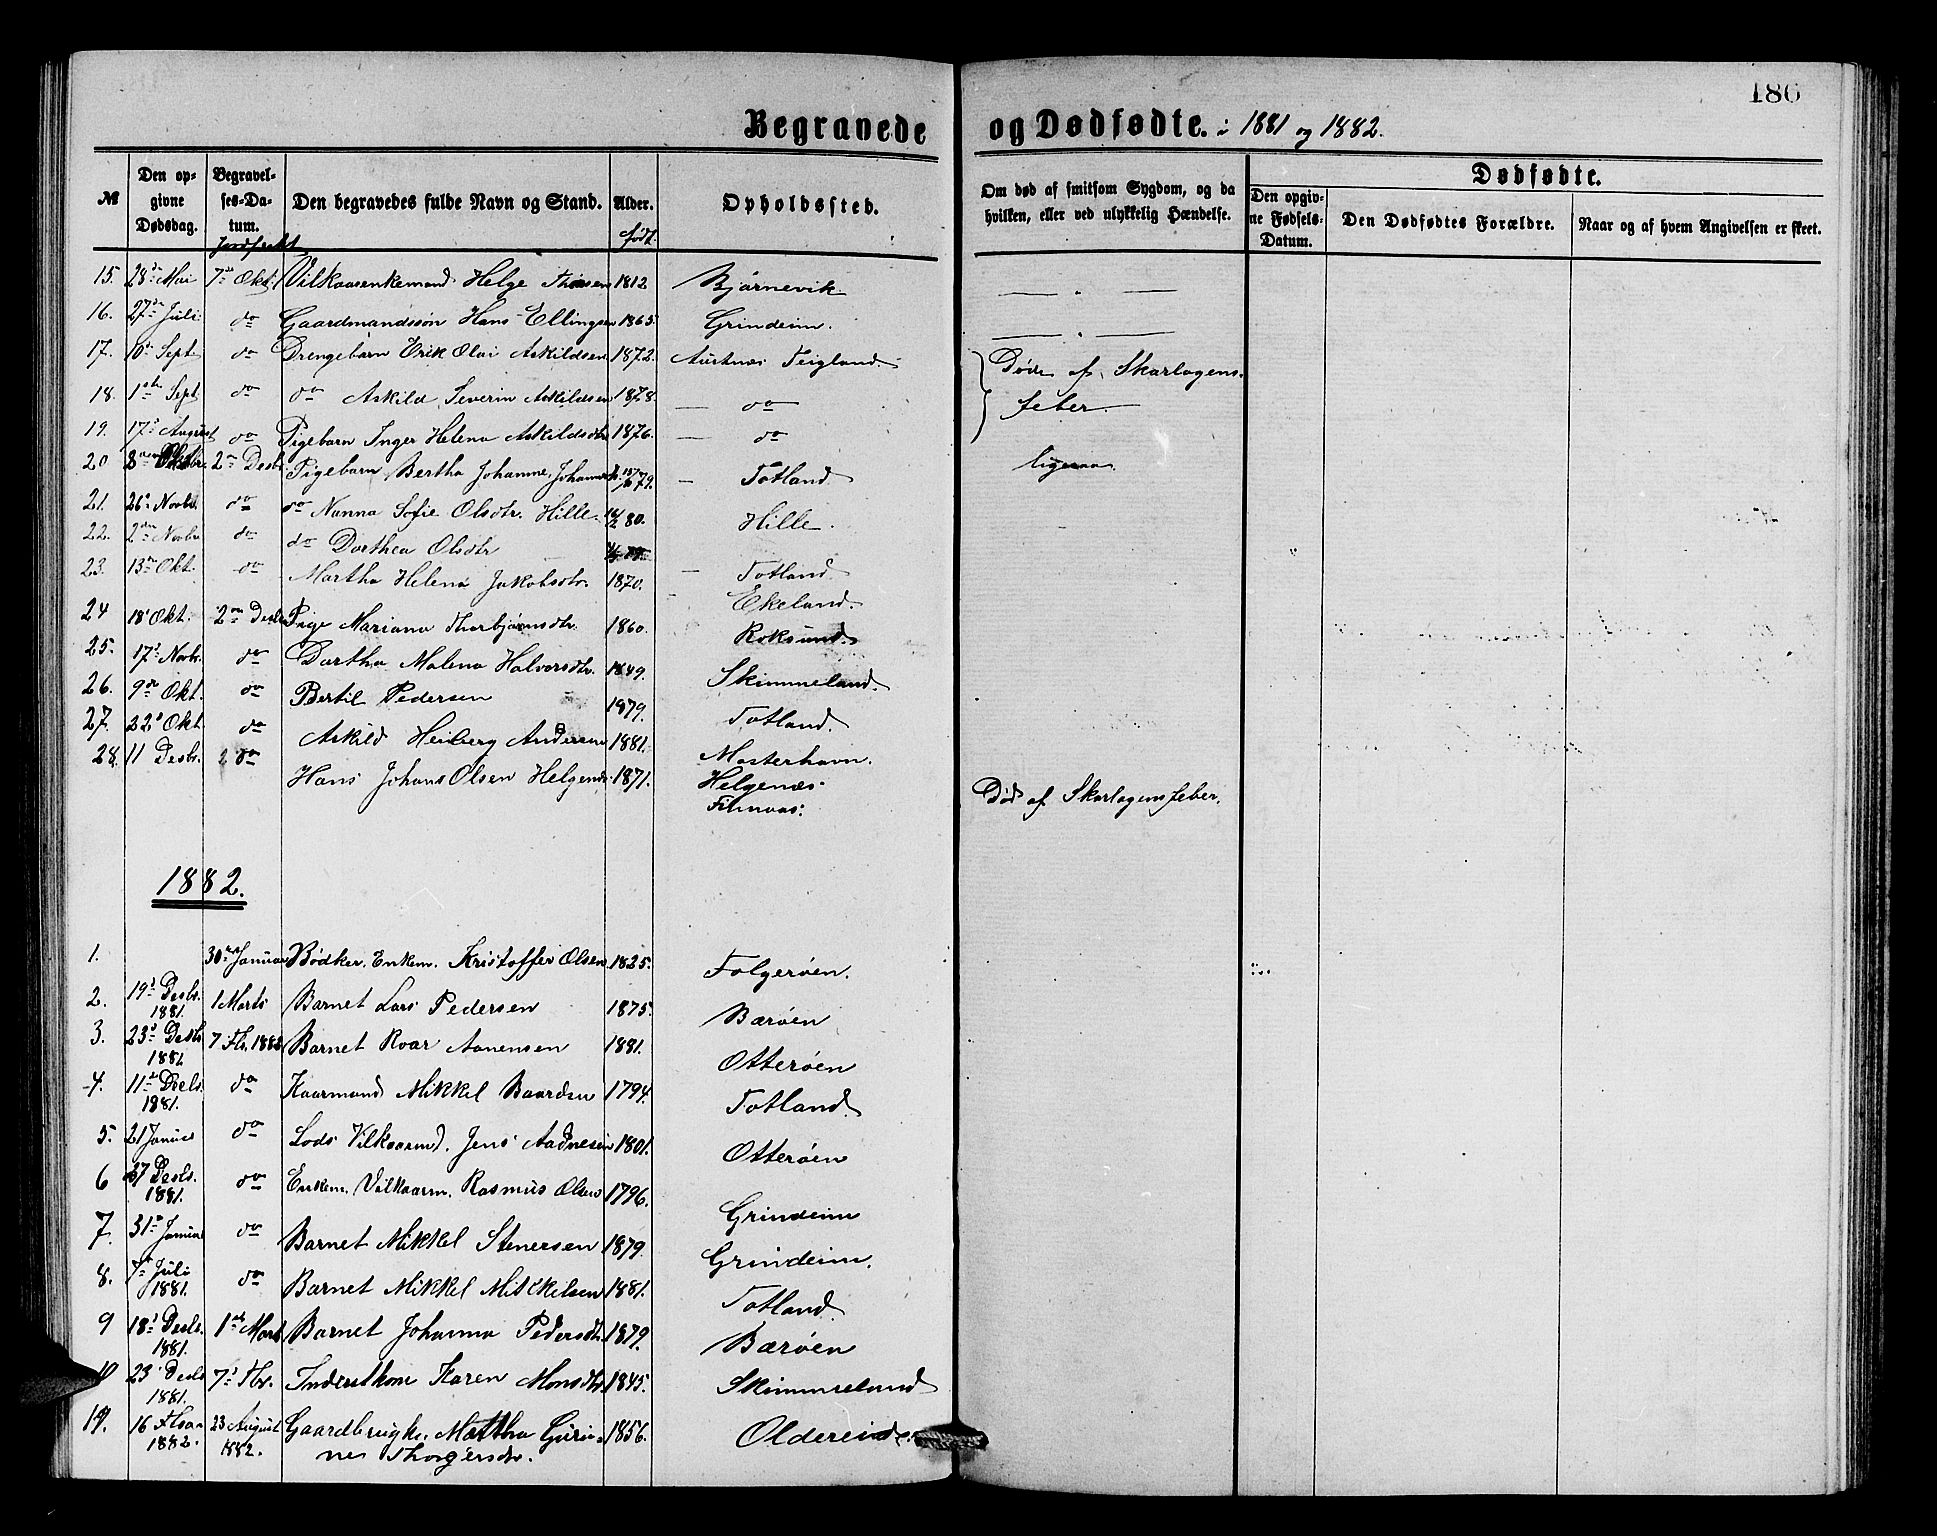 186
Begravede og Dødfødte. i 1881 og 1882.
№ Den opgivne Dødsdag. Begravelses-Datum. Den begravedes fulde Navn og Stand. Alder. Opholdssted. Om død af smitsom Sygdom, og da hvilken, eller ved ulykkelig Hændelse. Dødfødte.
Den opgivne Fødsels-Datum. Den Dødfødtes Forældre. Naar og af hvem Angivelsen er skeet.
Jordfæstet født.
15. 28de Mai 7de Okt. Vilkaarsenkemand Helge 1812 Bjørnevik — " —
16. 27de Juli do Gaardmandssøn Hans Ellingsen 1865. Grindeim. — " —
17. 10de Sept do Drengebarn Erik Olai Askildsen 1872. Teigland. Døde af Skarlagens-
18. 1ste Sept do do Askild Severin Askildsen 1878. — do feber.
19. 17de August do Pigebarn Inger Helena Askildsdtr 1876. — do
20 2den Desbr. Pigebarn Bertha Johanne 79. — Totland ligesaa.
21. 26de Novbr. do do Nanna Sofie Olsdtr. Hille. 80. Hille.
22. 2den Novbr do do Dorthea Olsdtr — Totland.
23. 13de Okt. do Martha Helena Jakobsdtr. 1870. Ekeland.
24 18de Okt. 2den Desbr Pige Mariana Thorbjørnsdtr. 1860. Roksund.
25. 17de Novbr. do Dortha Malena Halvorsdtr. 1849. Skimmeland.
26. 9de Okt. do Bertil Pedersen 1879. Totland.
27. 22de Okt. do Askild Heiberg Andersen 1881. Mosterhavn.
28. 11 Desbr. do Hans Johans Olsen 1871. Helgenæs Død af Skarlagensfeber.
Finnaas.
1882.
1. 30te Januar Bødker. Enkem. Kristoffer Olsen. 1825. Folgerøen.
2. 19de Desbr. 1881. 1 Marts Barnet Lars Pedersen 1875. Bærøen
3. 23de Desbr 1881 7 Fbr. 1882 Barnet Roar Aanensen 1881. Otterøen
4. 11te Desbr. 1881. do Kaarmand Mikkel Baardsen 1794. Totland.
5. 21 Januar do Lods Vilkaarmd. Jens Aadnesen 1801. Otterøen
6 Desbr. 1881. do Enkem. Vilkaarm. Rasmus Olsen 1796. Grindeim
7. 31te Januar do Barnet Mikkel Stenersen 1879. Grindeim.
8. 7de Juli 1881. do Barnet Mikkel Mikkelsen 1881. Totland.
9 18de Desbr. 1881. 1ste Marts Barnet Johanna Pedersdtr. 1879. Bærøen
10 23de Desbr 1881. 7de Fbr. Inderstkone Karen Monsdtr. 1845. Skimmeland
11. 16 Fbr 1882. 23 August 1882. Gaardbrugk. Martha Guri-
ne Thorgersdtr. 1856. Oldereide.